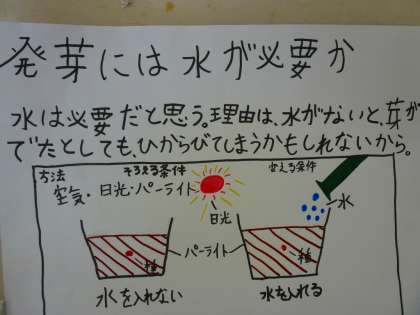 発芽には水が必要か
水は必要だと思う。理由は、水がないと、芽が
でたとしても、ひからびてしまうかもしれないから。
方法
そろえる条件
変える条件
空気・日光・パーライト
日光
水
パーライト
種
種
水を入れない
水を入れる